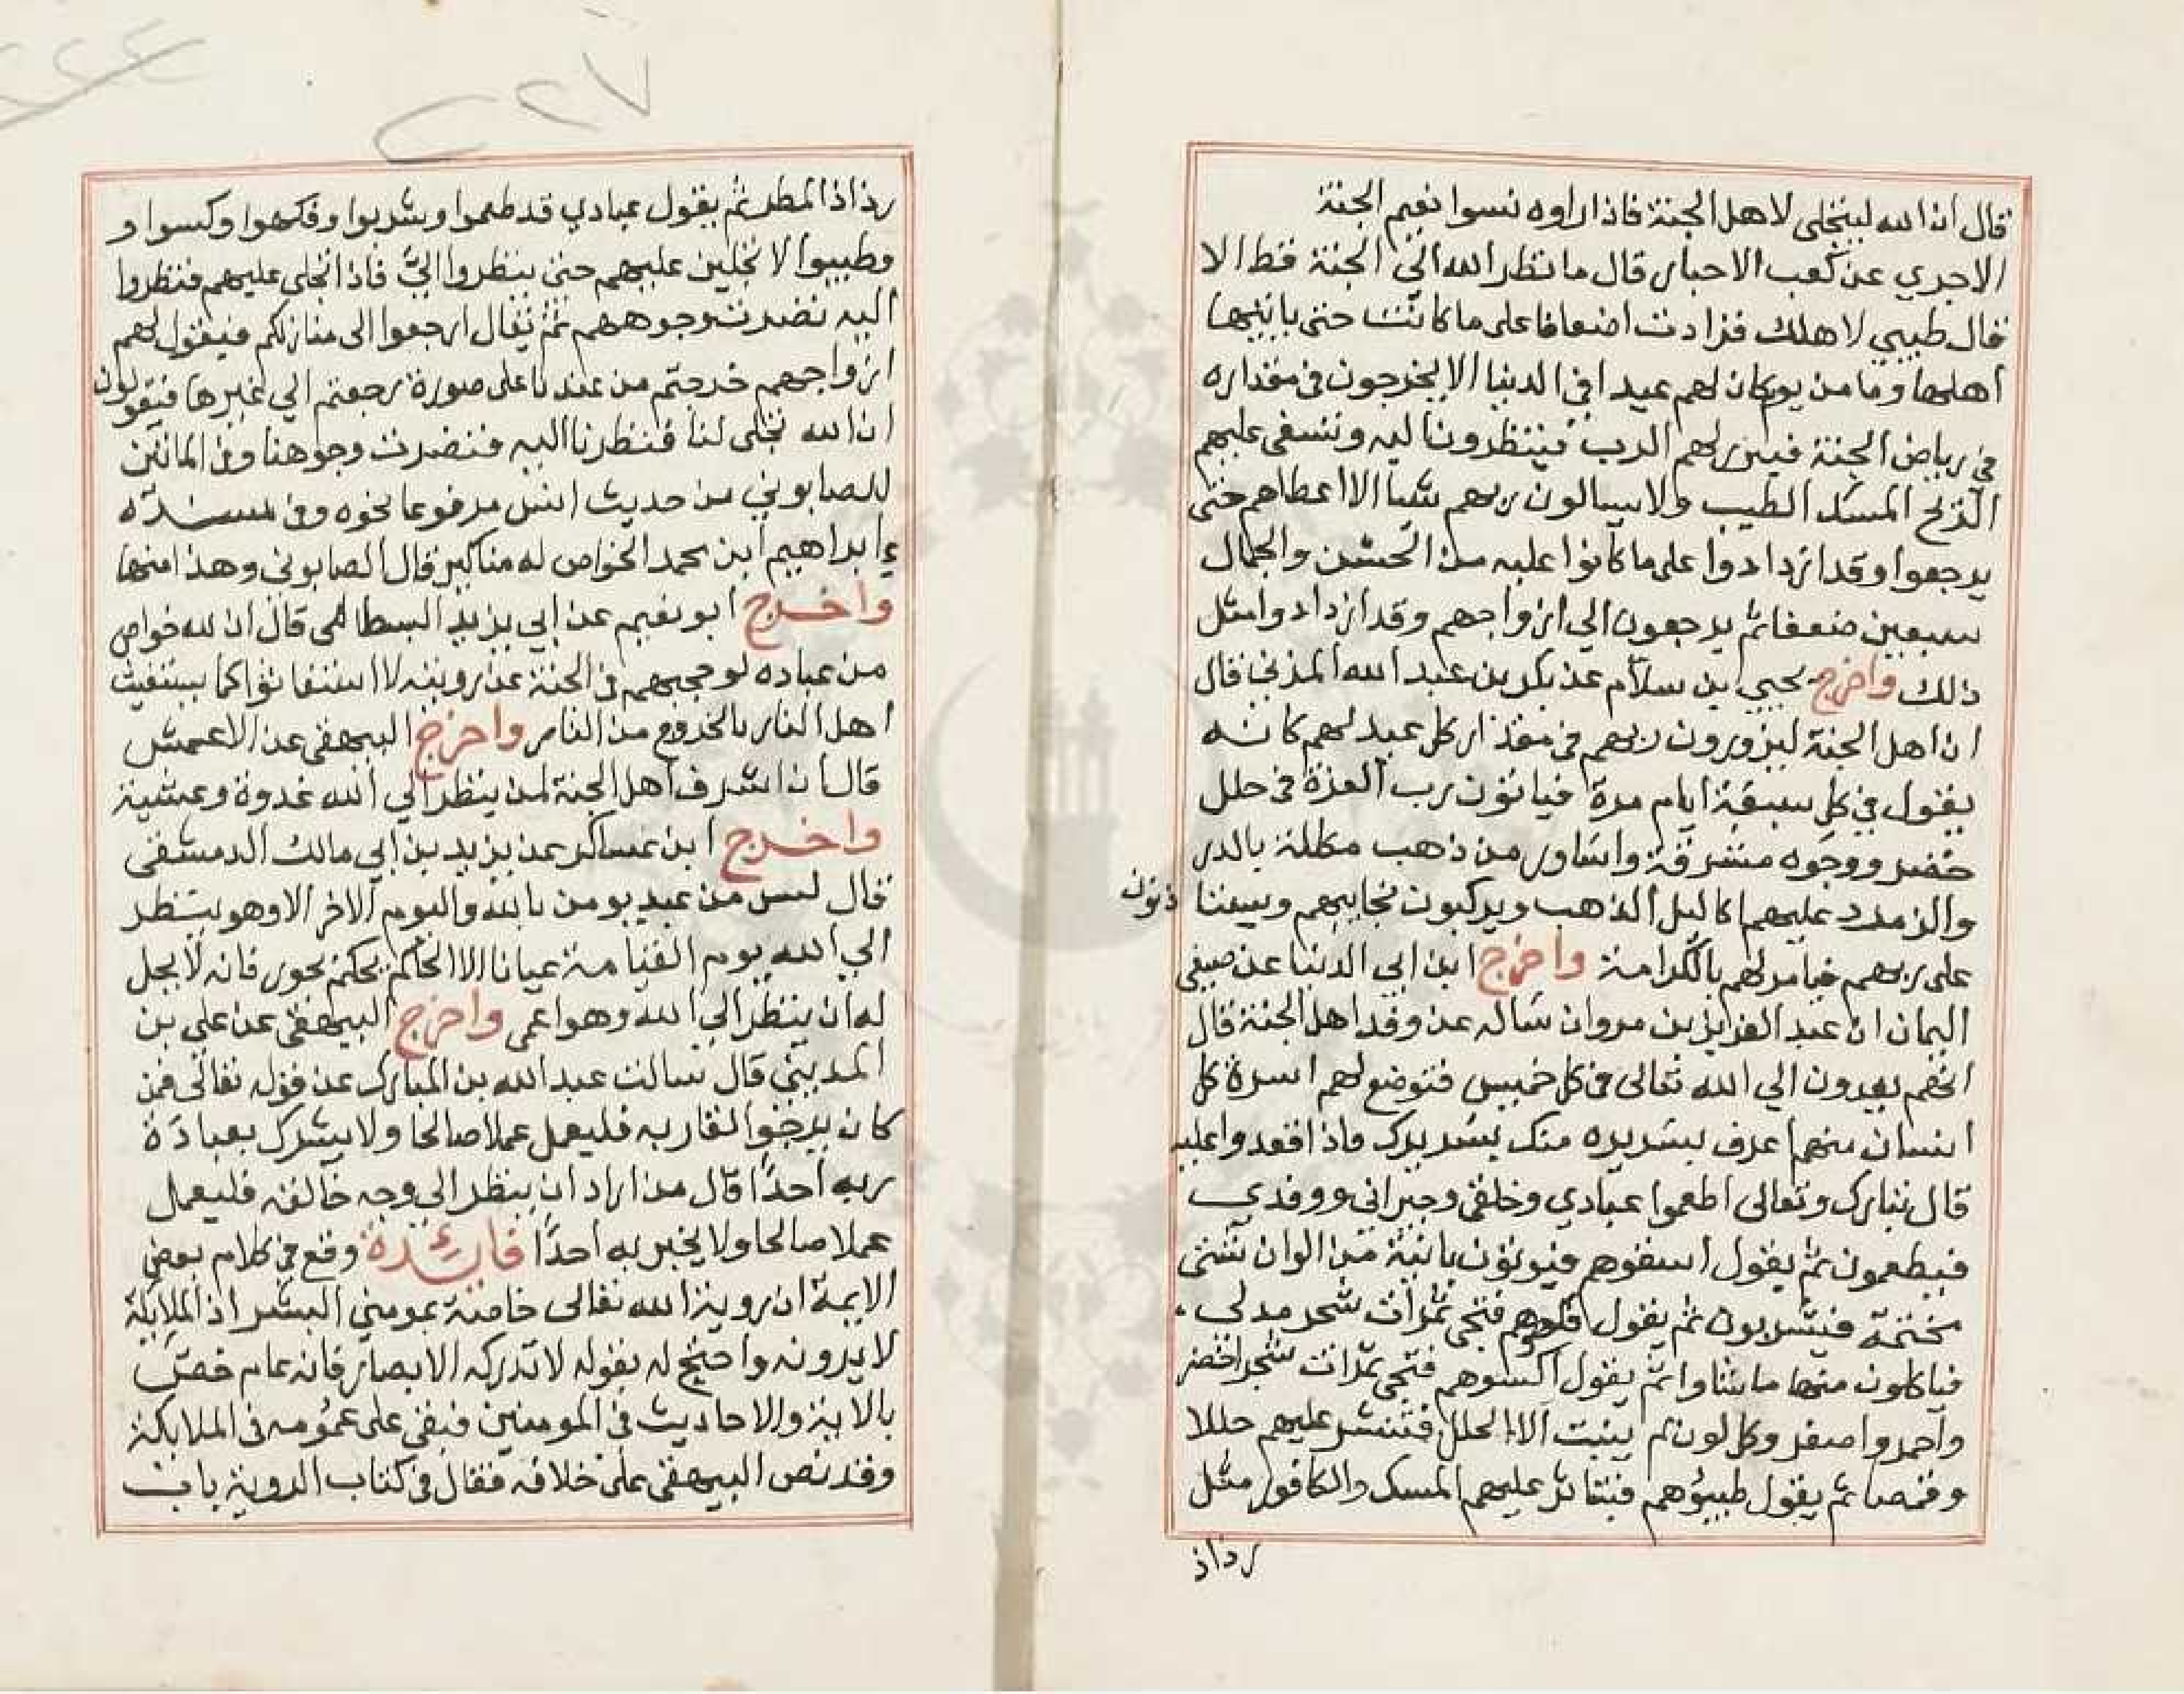 قال ان الله ليتجلى لاهل الجنة فاذا راوه نسوا نعيم الجنة
الاجري عن كعب الاحبار قال ما نظر الله الى الجنة قط الا
قال طيبي لاهلك فزادت اضعافا على ما كانت حتى ياتيها
اهلها وما من يوم كان لهم عيدا في الدنيا الا يخرجون في مقداره
في رياض الجنة فيبرز لهم الرب فينظرون اليه وتسفى عليهم
الريح المسك الطيب ولا يسالون ربهم شيا الا اعطاهم حتى
يرجعوا وقد ازدادوا على ما كانوا عليه من الحسن والجمال
سبعين ضعفا ثم يرجعون الى ازواجهم وقد ازدادوا مثل
ذلك واخرج يحيي ابن سلام عن بكر بن عبد الله المزني قال
ان اهل الجنة ليزورون ربهم في مقدار كل عيد لهم كانه
يقول في كل سبعة ايام مرة فياتون رب العزة في حلل
خضر ووجوه مشرقة واساور من ذهب مكللة بالدر
والزمرد عليهم اكاليل الذهب ويركبون نجايبهم ويستاذنون
على ربهم فيامر لهم بالكرامة واخرج ابن ابي الدنيا عن صيفي
اليمان ان عبد العزيز بن مروان ساله عن وفد اهل الجنة قال
انهم يفدون الي الله تعالى في كل خميس فتوضع لهم اسرة كل
انسان منهم اعرف بسريره منك بسريرك فاذا قعدوا عليه
قال تبارك وتعالى اطعموا عبادي وخلقي وجيراني ووفدي
فيطعمون ثم يقول اسقوهم فيوتون بانية من الوان شتى
مختمة فيشربون ثم يقول فكهوهم فتجي ثمرات شجر مدلى
فياكلون منها ما شاوا ثم يقول اكسوهم فتجي ثمرات شجر اخضر
واحمر واصفر وكل لون لم ينبت الا الحلل فتنشر عليهم حللا
وقمصا ثم يقول طيبوهم فيتناثر عليهم المسك والكافور مثل
رذاذ
٢٢٧
رذاذ المطر ثم يقول عبادي قد طعموا وشربوا وفكهوا وكسوا و
وطيبوا لاتجلين عليهم حتى ينظروا الي فاذا تجلى عليهم فنظروا
اليه نضرت وجوههم ثم يقال ارجعوا الى منازلكم فيقول لهم
ازواجهم خرجتم من عندنا على صورة رجعتم الي غيرها فيقولون
ان الله تجلى لنا فنظرنا اليه فنضرت وجوهنا وفي المائتين
للصابوني من حديث انس مرفوعا نحوه وفي مسنده
ابراهيم ابن محمد الخواص له مناكير قال الصابوني وهذا منها
واخرج ابو نعيم عن ابي يزيد البسطامى قال ان لله خواص
من عباده لو حجبهم في الجنة عن رويته لاستغاثوا كما يستغيث
اهل النار بالخروج من النار واخرج البيهقى عن الاعمش
قال ان اشرف اهل الجنة لمن ينظر الي الله غدوة وعشية
واخرج ابن عساكر عن يزيد بن ابي مالك الدمشقى
قال ليس من عبد يومن بالله واليوم الاخر الا وهو ينظر
الي الله يوم القيامة عيانا الا الحاكم يحكم بجور فانه لا يحل
له ان ينظر الي الله وهو اعمى واخرج البيهقى عن علي بن
المديني قال سالت عبد الله بن المبارك عن قوله تعالى فمن
كان يرجوا لقا ربه فليعمل عملا صالحا ولا يشرك بعبادة
ربه احدا قال من اراد ان ينظر الى وجه خالقه فليعمل
عملا صالحا ولا يخبر به احدا فائدة وقع في كلام بعض
الايمة ان روية الله تعالى خاصة بمومني البشر اذ الملايكة
لا يرونه واحتج له بقوله لا تدركه الابصار فانه عام خص
بالاية والاحاديث في المومنين فبقى على عمومه في الملايكة
وقد نص البيهقى على خلافه فقال في كتاب الروية باب